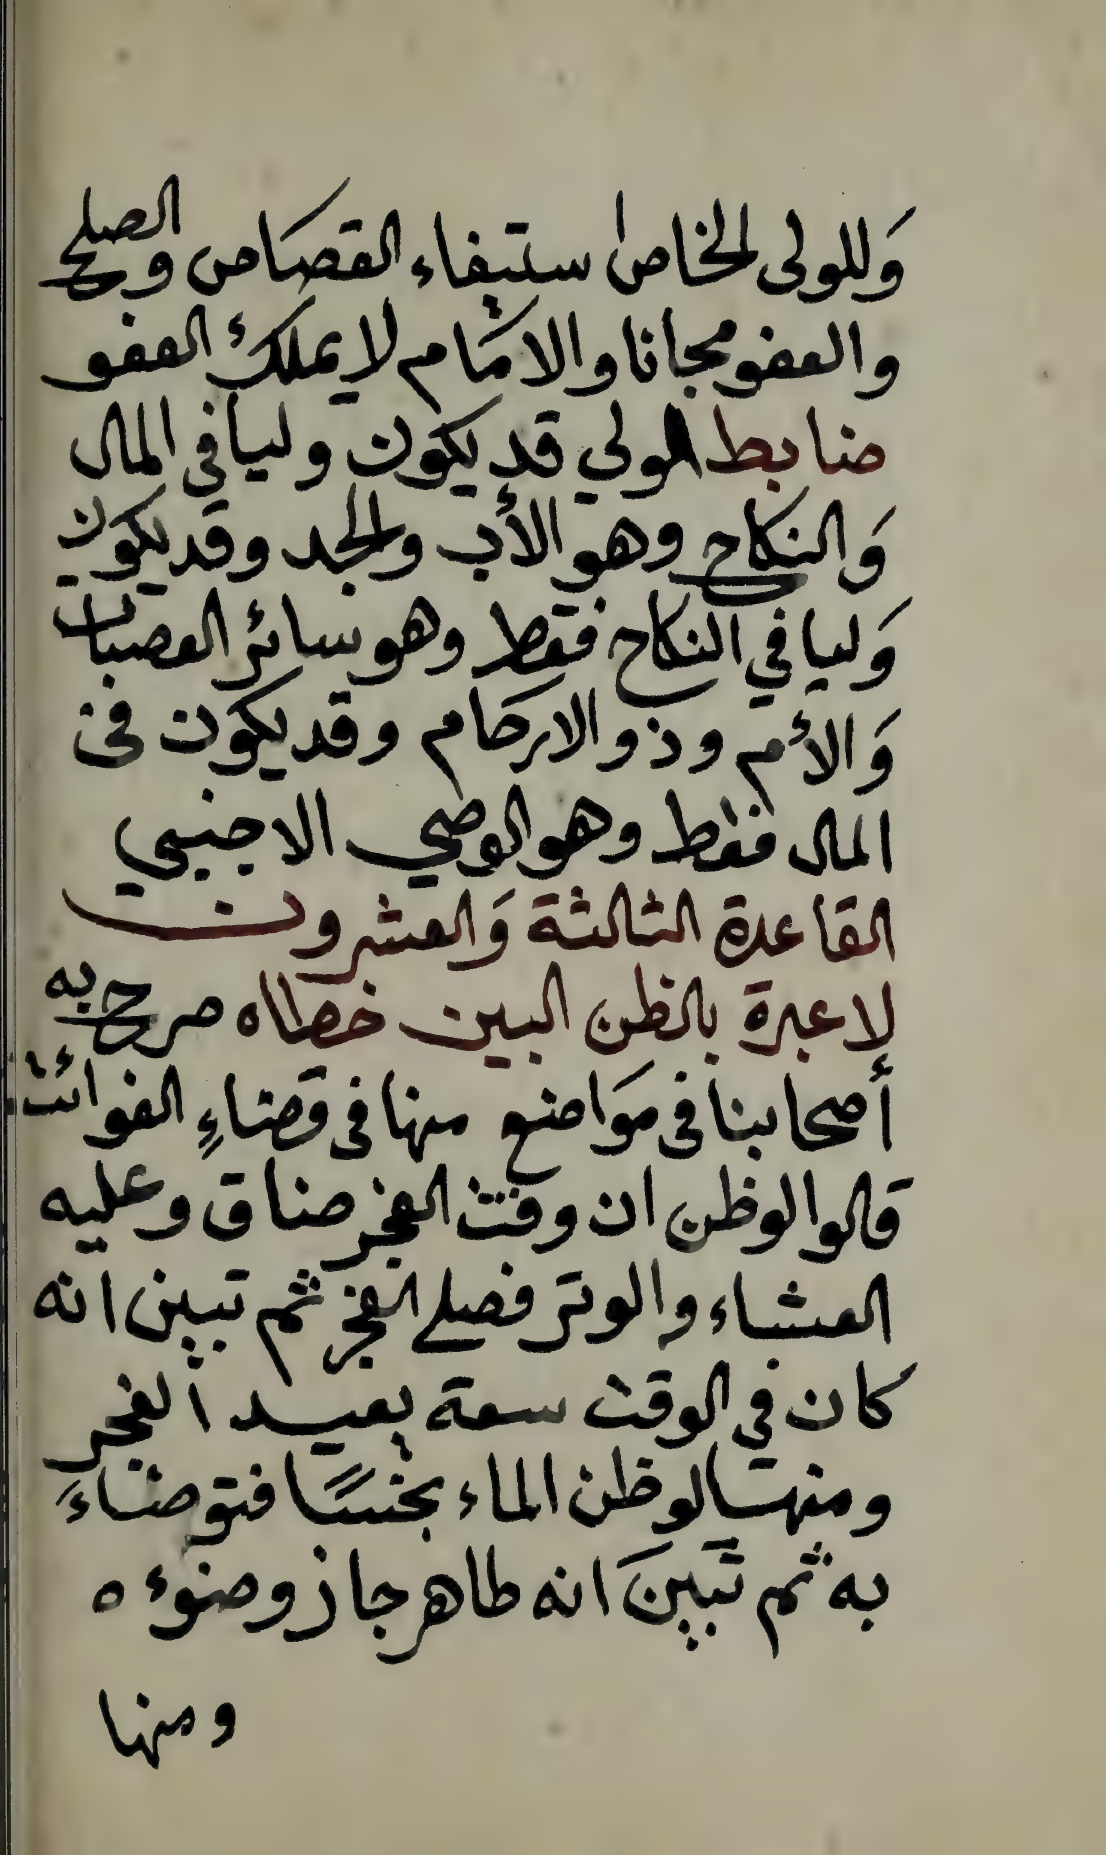 وَللولى الخاص استيفاء القصاص والصلح
والعفو مجانا والامام لا يملك العفو
ضابط الولي قد يكون وليا في المال
وَالنكاح وهو الأب والجد وقد يكون
وَليا في النكاح فقط وهو سائر العصبات
وَالأم وذو الارحام وقد يكون فى
المال فقط وهو الوصي الاجنبي
القاعدة الثالثة وَالعشرون
لا عبرة بالظن البين خطاه صرح به
أصحابنا فى مَواضع منها فى قضاءِ الفوائت
قالوا لو ظن ان وقت الفجر ضاق وعليه
العشاء والوتر فصلى الفجر ثم تبين انه
كان في الوقت سعة يعيد الفجر
ومنها لو ظن الماء نجسًا فتوضاءَ
به ثم تبينَ انه طاهر جاز وضوءه
ومنها